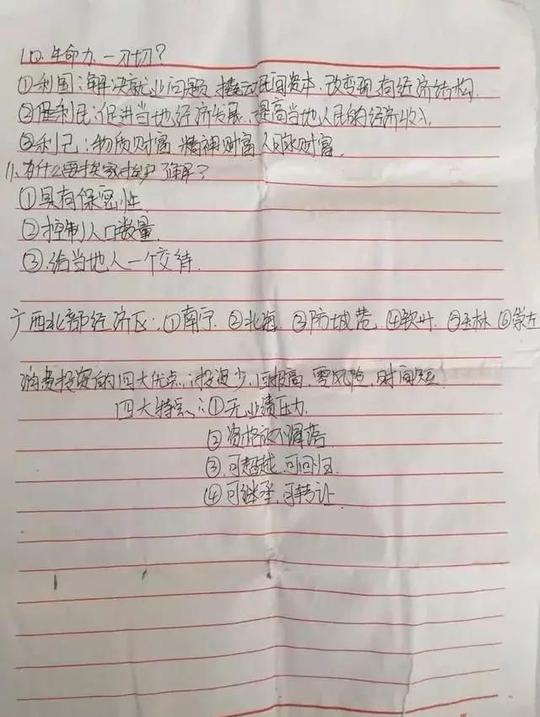 10. 生命力 一切?
①利国:解决就业问题 撬动民间资本.改变现有经济结构.
②便利民:促进当地经济发展.提高当地人民的经济收入
③利己:物质财富 精神财富 人脉财富.
11.为什么要挨家挨户了解?
①具有保密性
②控制人口数量
③.给当地人一个交待.
广西北部经济区.①南宁 ②北海 ③防城港 ④钦州 ⑤玉林 ⑥崇左
消费投资的四大优点:投资少.回报高.零风险.时间短
四大特点:①无业绩压力.
②资格永不滑落
③.可超越.可回归.
④可继承.可转让.